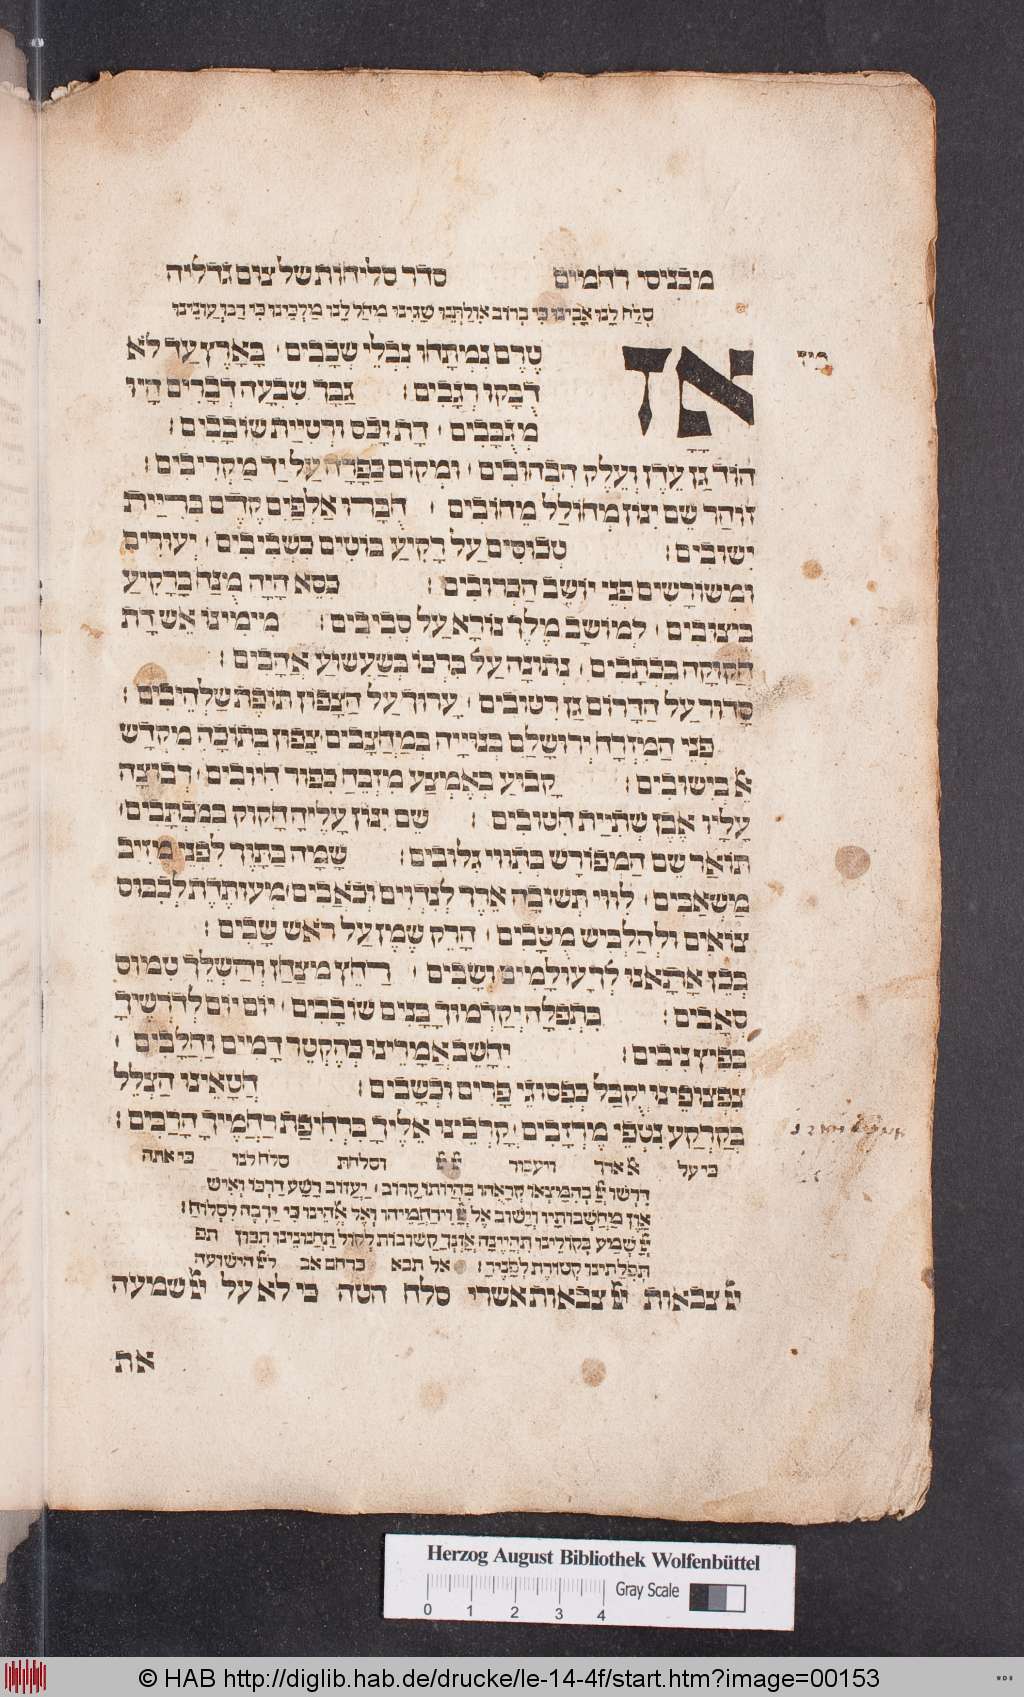 מכניסי רחמים סדר סליחות של צום גדליה
סְלַח לָנוּ אָבִינוּ כִּי בְרוֹב אִוַּלְתֵּנוּ שָׁגִינוּ מְחַל לָנוּ מַלְכֵּינוּ כִּי רַבּוּ עֲוֹנֵינוּ
אָז טֶרֶם נִמְתְּחוּ נִבְלֵי שְׁכָבִים׃ בָּאָרֶץ עַד לֹא
דָבְקוּ רְגָבִים׃ גַּבָּךְ שִׁבְעָה דְבָרִים הָיוּ
מְגֻבָּבִים׃ דָּת וָכֵס וּרְטִיַּית שׁוֹבָבִים׃
הוֹד גַּן עֵדֶן וְעֵלֶק הַבְהוּבִים׃ וּמְקוֹם כַּפָּרָה עַל יַד מַקְרִיבִים׃
זוֹהַר שֵׁם יִנּוֹן מְחוֹלָל מֵחוֹבִים׃ חֻבְּרוּ אַלְפַּיִם קֶדֶם בְּרִיַּית
יִשּׁוּבִים׃ טְבוּסִים עַל רָקִיעַ בּוֹטִים כִּשְׁבִיבִים׃ יְעוּדִים
וּמְשׁוֹרָשִׁים פְּנֵי יוֹשֵׁב הַכְּרוּבִים׃ כִּסֵּא הָיָה מְצַח בָּרָקִיעַ
בִּיצוּבִים׃ לְמוֹשַׁב מֶלֶךְ נוֹרָא עַל סְבִיבִים׃ מִימִינוֹ אֵשׁ דָּת
חֲקוּקָה בִּכְתָבִים׃ נְתוּנָה עַל בִּרְכּוֹ בְּשַׁעֲשׁוּעַ אֲהָבִים׃
סָדוּר עַל הַדָּרוֹם גַּן רְטוּבִים׃ עָרוּךְ עַל הַצָּפוֹן תּוֹפֶת שַׁלְהֵיבִים׃
פְּנֵי הַמִּזְרָח יְרוּשָׁלַם בְּנוּיָיה בְּמַחֲצָבִים צָפוּן בְּתוֹכָהּ מִקְדַּשׁ
אֵ׳ בְּיִשּׁוּבִים׃ קָבִיעַ בְּאֶמְצַע מִזְבַּח כִּפּוּר חִיּוּבִים׃ רְבוּצָה
עָלָיו אֶבֶן שְׁתִיַּית חִטּוּבִים׃ שֵׁם יִנּוֹן עָלֶיהָ חָקוּק בְּמִכְתָּבִים׃
תּוֹאַר שֵׁם הַמְפוֹרָשׁ בְּתָווּי גִלּוּבִים׃ שָׂמָהּ בַּתָּוֶךְ לִפְנֵי מֵזִיב
מַשְׁאַבִּים׃ לִוּוּי תְּשׁוּבָה אֶרֶךְ לִנְדוּיִם וּכְאֵבִים׃ מְעוּתֶּדֶת לְכַבּוּס
צוֹאִים וּלְהַלְבִּישׁ מְטָבִים׃ הָרֵק שֶׁמֶן עַל רֹאשׁ שָׁבִים׃
בְּכֵן אָתָאנוּ לְךָ עוֹלָמִים וְשָׁבִים׃ רְחַץ מִצַּחַן וְהַשְׁלֵךְ טִמּוּס
סְאָבִים׃ בִּתְפִלָּה יְקַדְּמוּךָ בָּנִים שׁוֹבָבִים׃ יוֹם יוֹם לְדָרְשֶׁיךָ
בְּפִיץ נִיבִים׃ יֵחָשֵׁב אֲמָרֵינוּ כְּהֶקְטֵר דָּמִים וַחֲלָבִים׃
צִפְצוּפֵינוּ יְקֻבַּל כְּפִסּוּגֵי פָרִים וּכְשָׂבִים׃ חֲטָאֵינוּ הַצְלֵל
בְּקַרְקַע נִטְפֵי מְרֻזָּבִים׃ קָרְבֵינוּ אֵלֶיךָ בִּרְחִיפַת רַחֲמֶיךָ הָרַבִּים׃
כי על א׳ ארך ויעבור יי יי וסלחת סלח לנו כי אתה
דִּרְשׁוּ יְיָ בְּהִמָּצְאוֹ קְרָאֻהוּ בִּהְיוֹתוֹ קָרוֹב׃ יַעֲזוֹב רָשָׁע דַּרְכּוֹ וְאִישׁ
אָוֶן מַחְשְׁבוֹתָיו וְיָשׁוּב אֶל יְיָ וִירַחֲמֵיהוּ וְאֶל אֱלֹהֵינוּ כִּי יַרְבֶּה לִסְלוֹחַ׃
יְיָ שְׁמַע בְּקוֹלֵינוּ תִּהְיֶינָה אָזְנֶךָ קַשּׁוּבוֹת לְקוֹל תַּחֲנוּנֵינוּ תִּכּוֹן תפ
תְּפִלָּתֵינוּ קְטוֹרֶת לְפָנֶיךָ׃ אל תבא כרחם אב ליי הישועה
יי צבאות יי צבאות אשרי סלח הטה כי לא על יי שמיעה
את